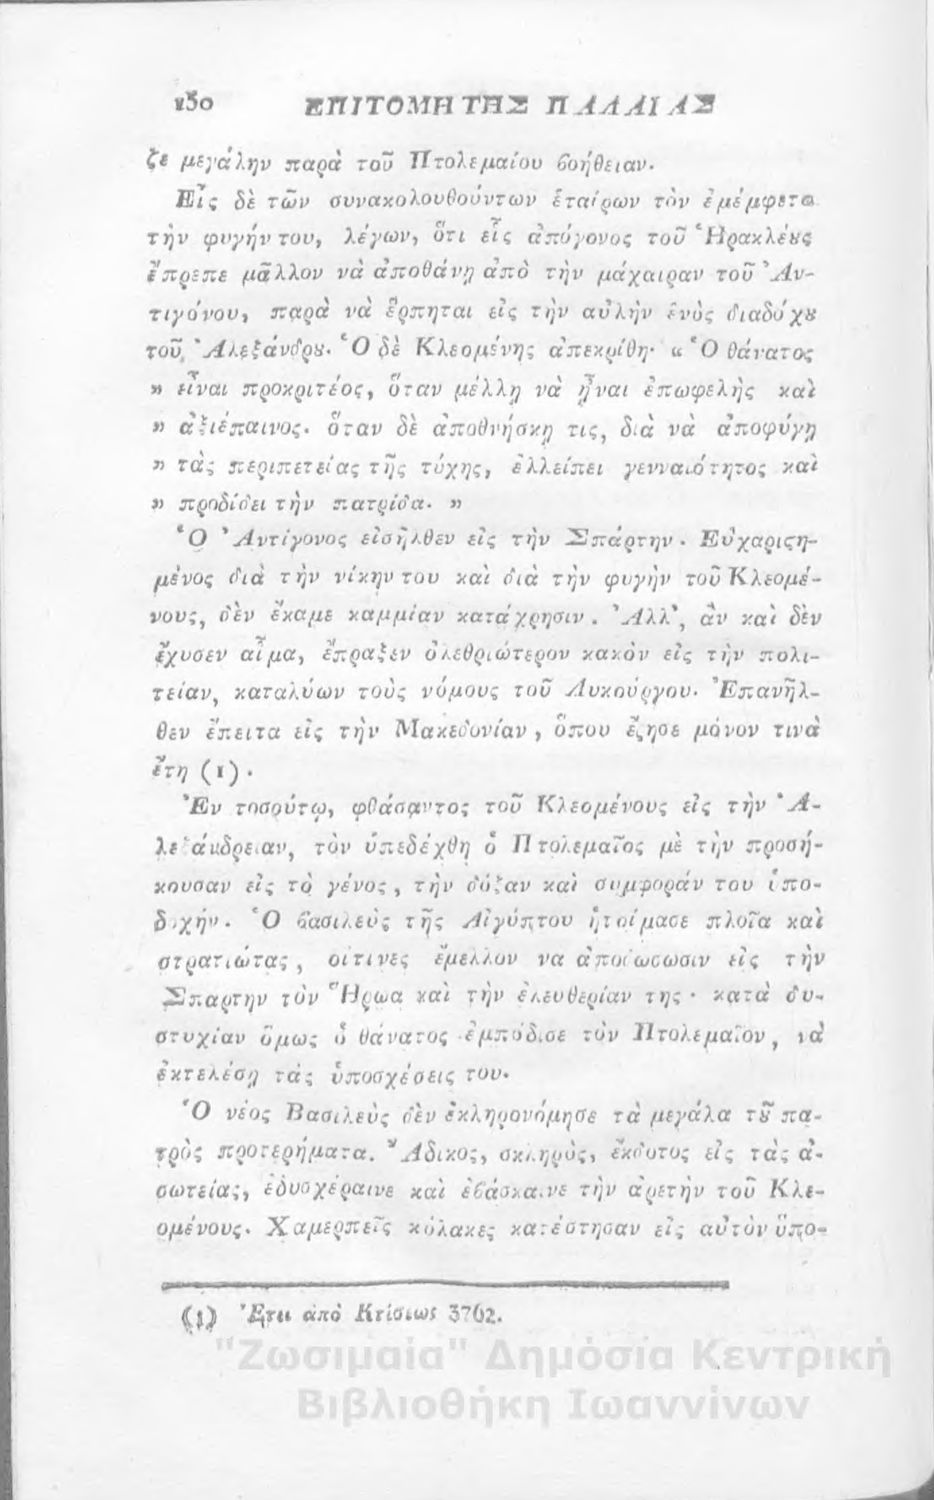 150 ΕΠΙΤΟΜΗ ΤΗΣ ΠΑΛΑΙΑΣ
ζε μεγάλην παρὰ τοῦ Πτολεμαίου βοήθειαν.
Εἷς δὲ τῶν συνακολουθούντων ἑταίρων τὸν ἐμέμφετο
τὴν φυγήν του, λέγων, ὅτι εἷς ἀπόγονος τοῦ Ἡρακλέȣς
ἔπρεπε μᾶλλον νὰ ἀποθάνῃ ἀπὸ τὴν μάχαιραν τοῦ Ἀν-
τιγόνου, παρὰ νὰ ἕρπηται εἰς τὴν αὐλὴν ἑνὸς διαδόχȣ
τοῦ Ἀλεξάνδρȣ. Ὁ δὲ Κλεομένης ἀπεκρίθη· « Ὁ θάνατος
» εἶναι προκριτέος, ὅταν μέλλῃ νὰ ᾖναι ἐπωφελὴς καὶ
» ἀξιέπαινος. ὅταν δὲ ἀποθνήσκῃ τις, διὰ νὰ ἀποφύγῃ
» τὰς περιπετείας τῆς τύχης, ἐλλείπει γενναιότητος καὶ
» προδίδει τὴν πατρίδα. »
Ὁ Ἀντίγονος εἰσῆλθεν εἰς τὴν Σπάρτην. Εὐχαριϛη-
μένος διὰ τὴν νίκην του καὶ διὰ τὴν φυγὴν τοῦ Κλεομέ-
νους, δὲν ἔκαμε καμμίαν κατάχρησιν. Ἀλλ', ἂν καὶ δὲν
ἔχυσεν αἷμα, ἔπραξεν ὀλεθριώτερον κακὸν εἰς τὴν πολι-
τείαν, καταλύων τοὺς νόμους τοῦ Λυκούργου. Ἐπανῆλ-
θεν ἔπειτα εἰς τὴν Μακεδονίαν, ὅπου ἔζησε μόνον τινὰ
ἔτη (1).
Ἐν τοσούτῳ, φθάσαντος τοῦ Κλεομένους εἰς τὴν Ἀ-
λεξάνδρειαν, τὸν ὑπεδέχθη ὁ Πτολεμαῖος μὲ τὴν προσή-
κουσαν εἰς τὸ γένος, τὴν δόξαν καὶ συμφοράν του ὑπο-
δοχήν. Ὁ βασιλεὺς τῆς Αἰγύπτου ἡτοίμασε πλοῖα καὶ
στρατιώτας, οἵτινες ἔμελλον να ἀποδώσωσιν εἰς τὴν
Σπαρτην τὸν Ἥρωα καὶ τὴν ἐλευθερίαν της· κατὰ δυ-
στυχίαν ὅμως ὁ θάνατος ἐμπόδισε τὸν Πτολεμαῖον, νὰ
ἐκτελέσῃ τὰς ὑποσχέσεις του.
Ὁ νέος Βασιλεὺς δὲν ἐκληρονόμησε τὰ μεγάλα τȣ͂ πα-
τρὸς προτερήματα. Ἄδικος, σκληρὸς, ἔκδοτος εἰς τὰς ἀ-
σωτείας, ἐδυσχέραινε καὶ ἐβάσκαινε τὴν ἀρετὴν τοῦ Κλε-
ομένους. Χαμερπεῖς κόλακες κατέστησαν εἰς αὐτὸν ὕπο-
(1) Ἔτει ἀπὸ Κτίσεως 3762.
"Ζωσιμαία" Δημόσια Κεντρική
Βιβλιοθήκη Ιωαννίνων